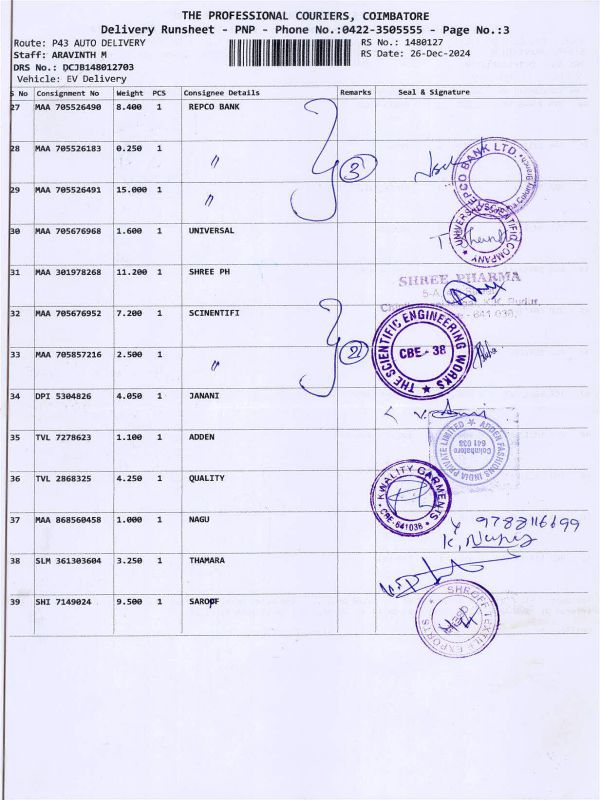 THE PROFESSIONAL COURIERS, COIMBATORE
Delivery Runsheet - PNP - Phone No.:0422-3505555 - Page No.:3
Route: P43 AUTO DELIVERY RS No.: 1480127
Staff: ARAVINTH M RS Date: 26-Dec-2024
DRS No.: DCJB148012703
Vehicle: EV Delivery
S No Consignment No Weight PCS Consignee Details Remarks Seal & Signature
27 MAA 705526490 8.400 1 REPCO BANK
28 MAA 705526183 0.250 1 〃 3
REPCO BANK LTD.
29 MAA 705526491 15.000 1 〃
30 MAA 705676968 1.600 1 UNIVERSAL
UNIVERSAL SCIENTIFIC COMPANY
31 MAA 301978268 11.200 1 SHREE PH
SHREE PHARMA
5-A,
K.K. Pudur,
- 641 038.
32 MAA 705676952 7.200 1 SCINENTIFI
33 MAA 705857216 2.500 1 〃 2
THE SCIENTIFIC ENGINEERING WORKS
CBE - 38
34 DPI 5304826 4.050 1 JANANI
35 TVL 7278623 1.100 1 ADDEN
ADDEN FASHIONS INDIA PRIVATE LIMITED
Coimbatore
641 038
36 TVL 2868325 4.250 1 QUALITY
KWALITY GARMENTS
CBE-641038
37 MAA 868560458 1.000 1 NAGU
9788116699
38 SLM 361303604 3.250 1 THAMARA
39 SHI 7149024 9.500 1 SAROFF
SHROFF TEXTILE EXPORTS